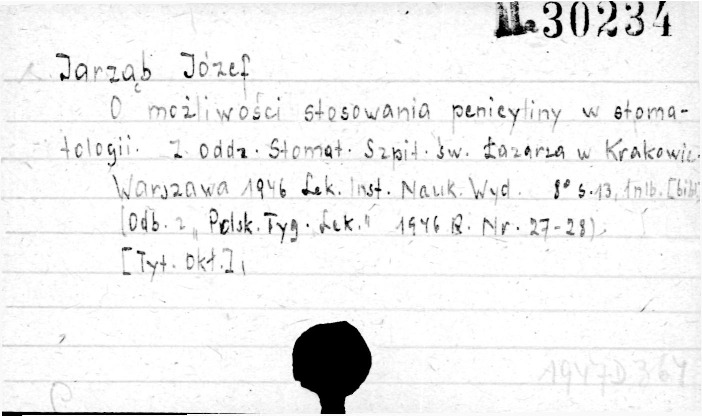 II. 30234
Jarząb Józef
O możliwości stosowania penicyliny w stoma-
tologii. Z oddz. Stomat. Szpit. św. Łazarza w Krakowie.
Warszawa 1946 Lek. Inst. Nauk. Wyd. 8° s. 13, 1 nlb. [bibl.
(Odb. z "Polsk. Tyg. Lek." 1946 R. Nr. 27-28)
[Tyt. okł.]